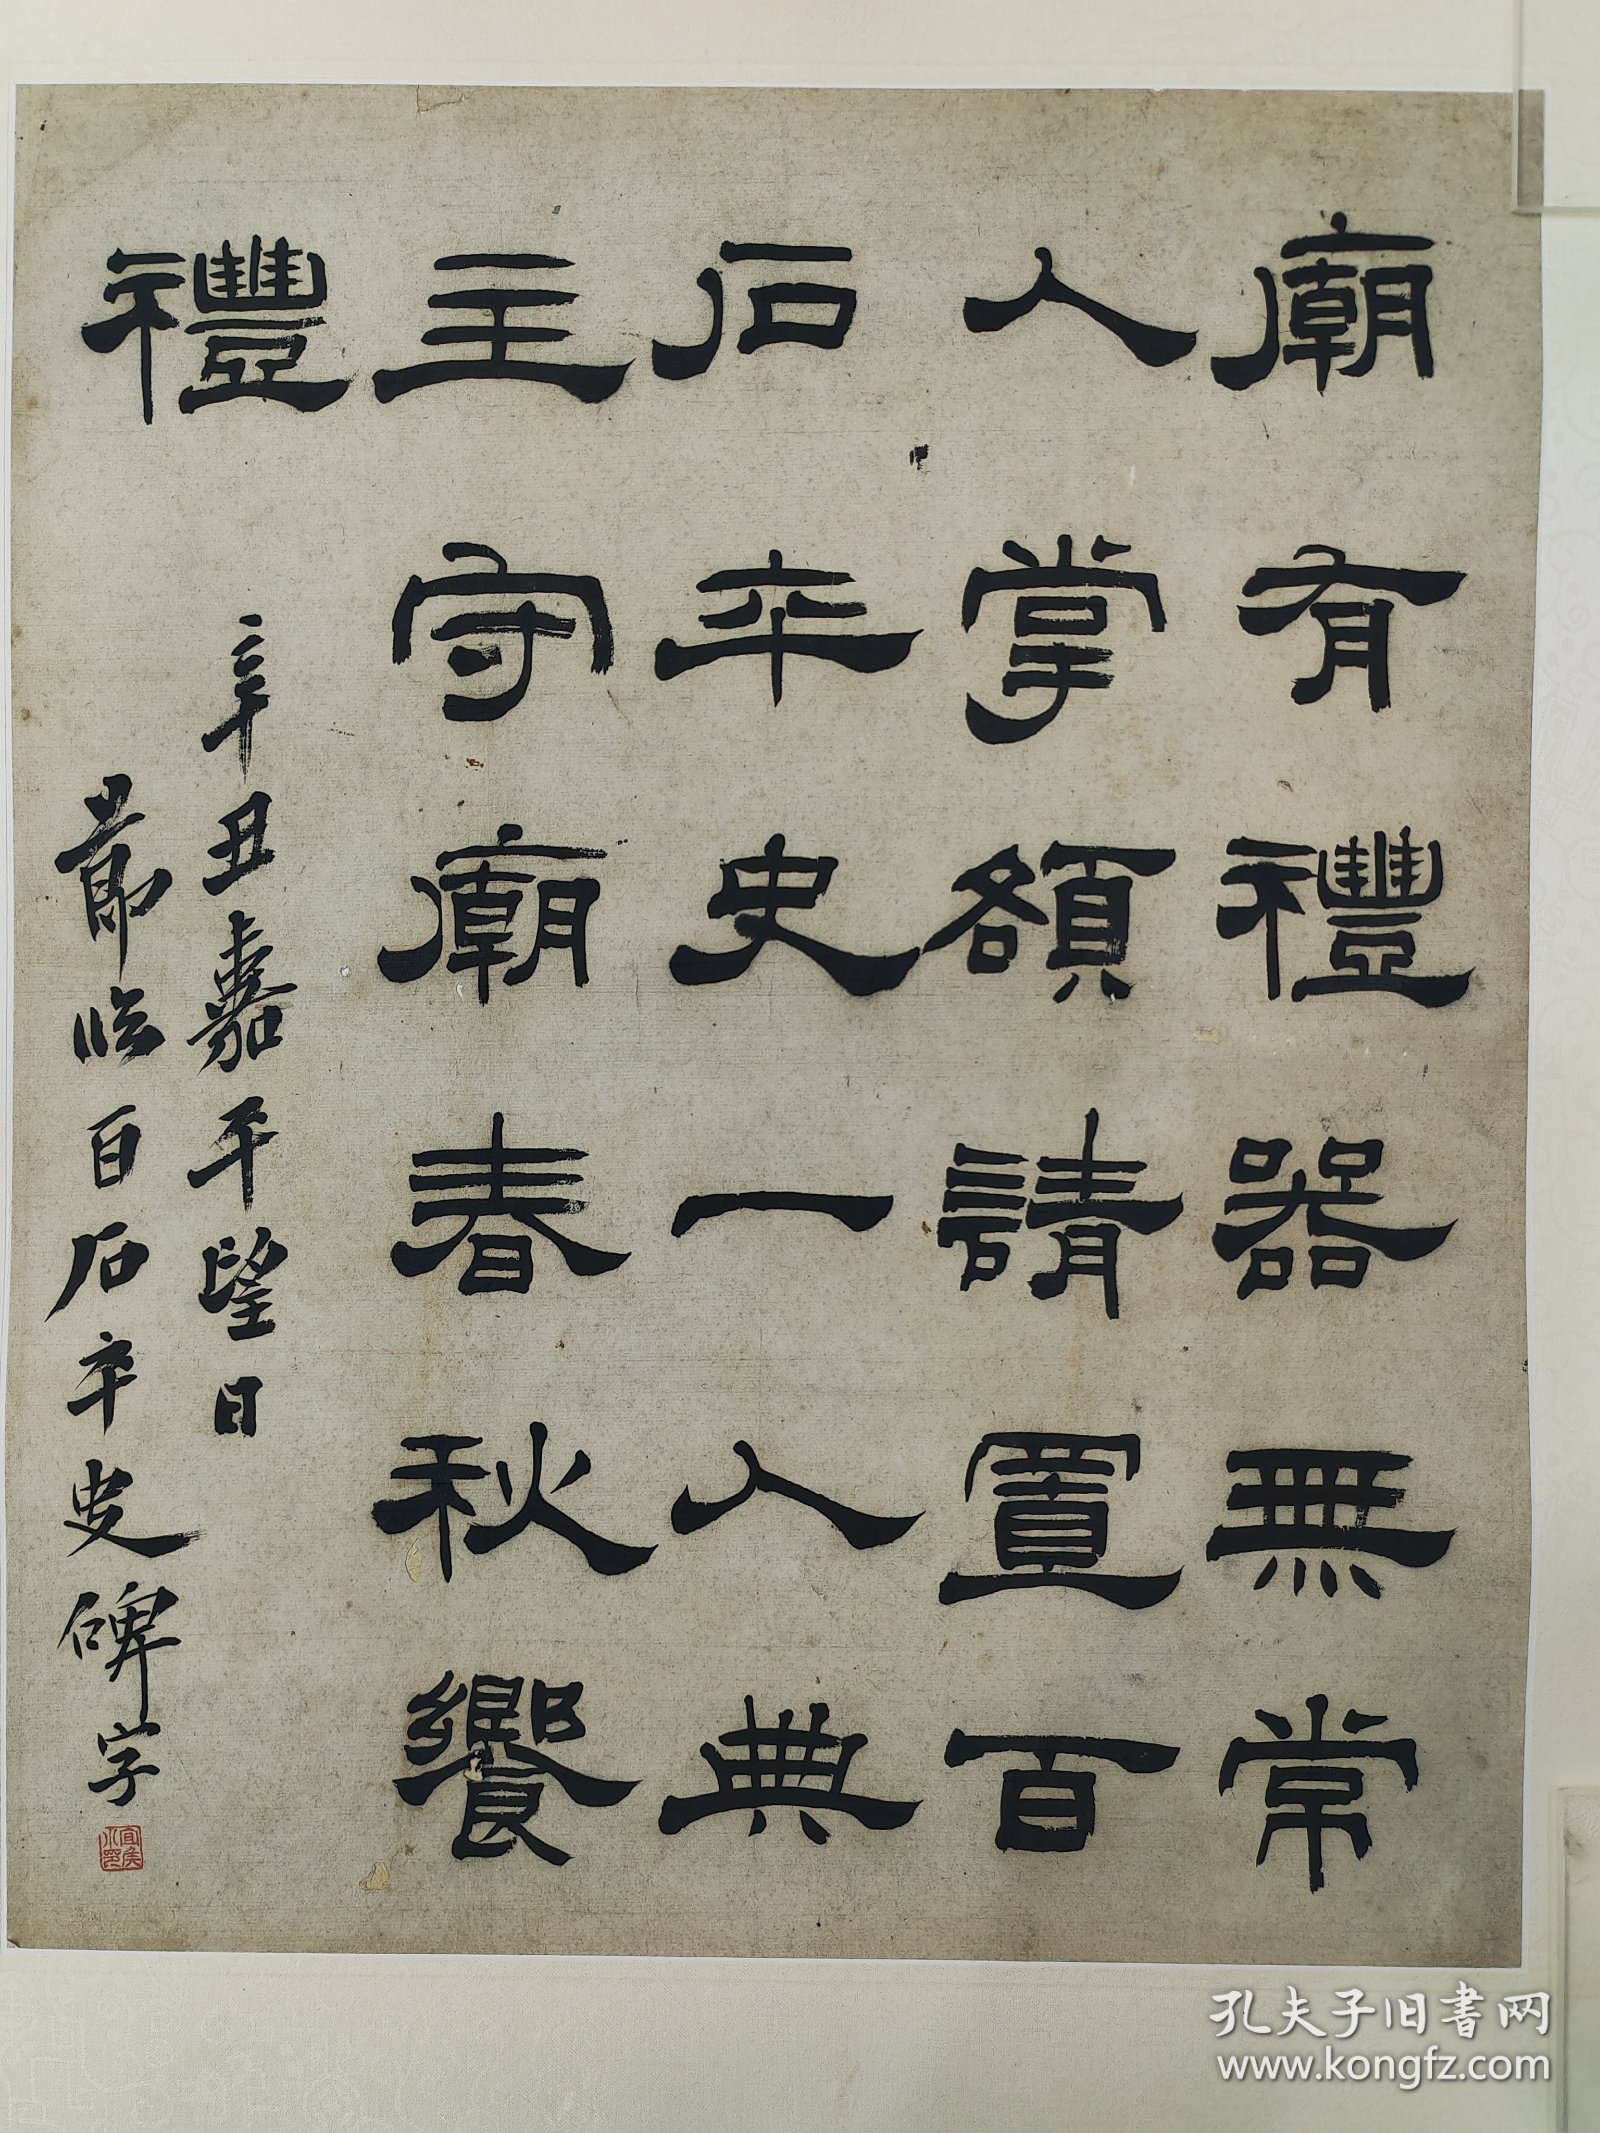 廟有禮器無常
人掌領請置百
石卒史一人典
主守廟春秋饗
禮
辛丑嘉平望日
節臨百石卒史碑字
孔夫子旧书网
www.kongfz.com